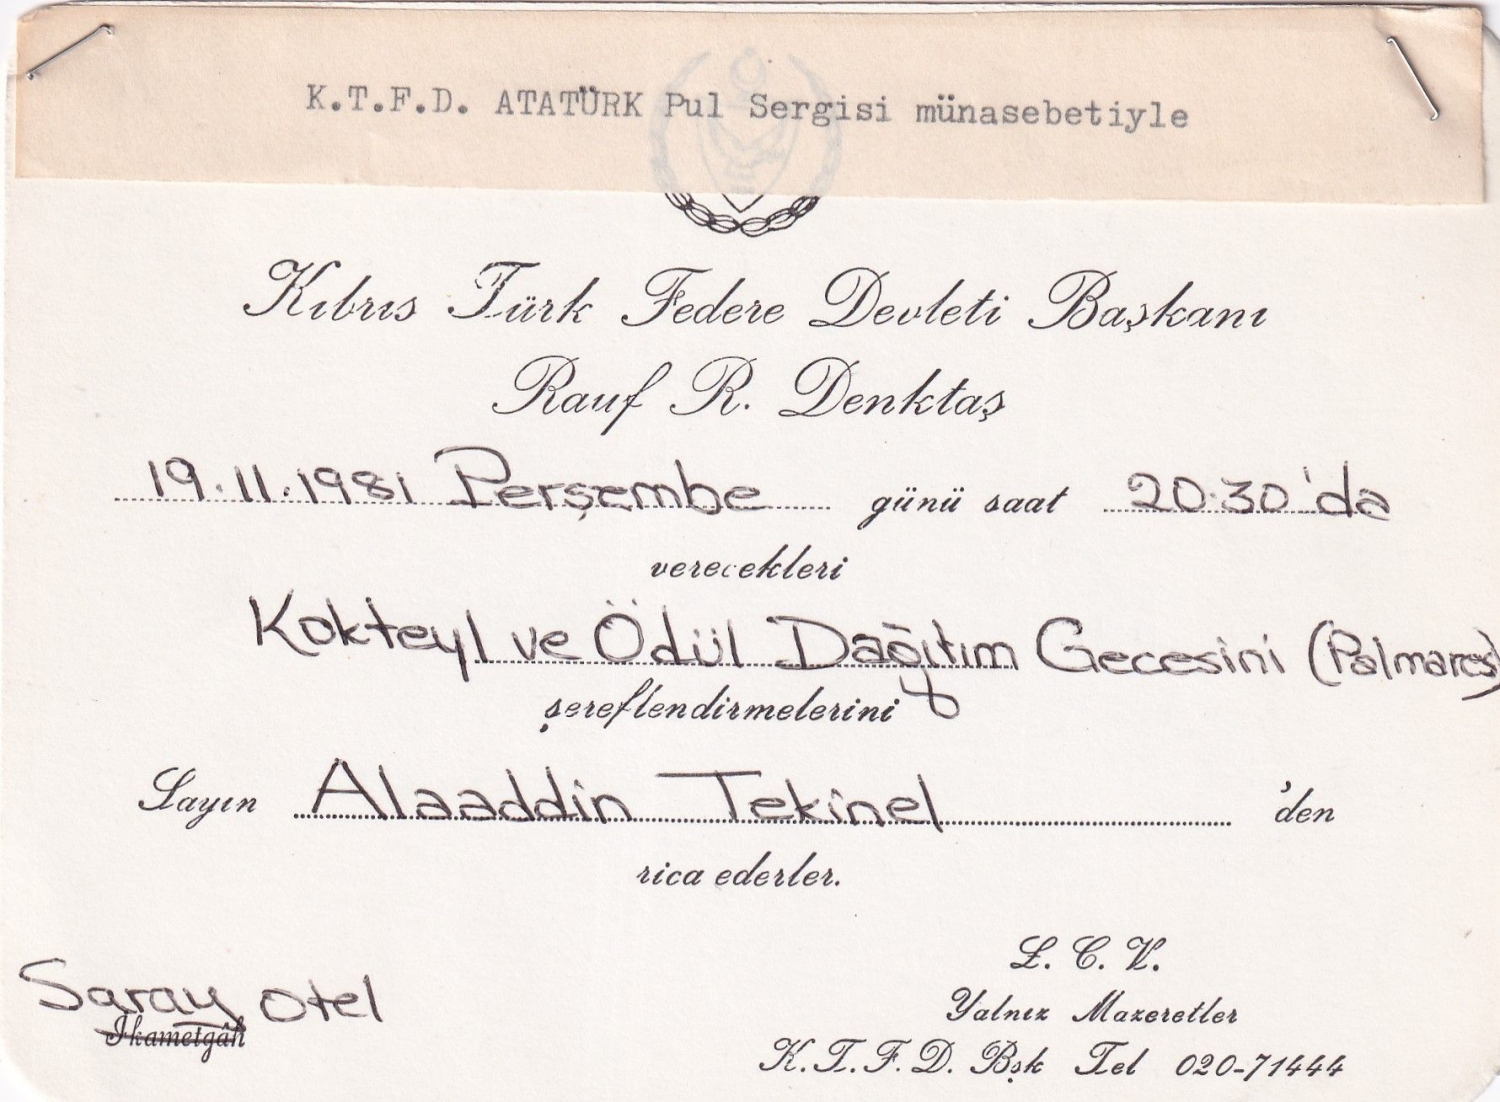 K.T.F.D. ATATÜRK Pul Sergisi münasebetiyle
Kıbrıs Türk Federe Devleti Başkanı
Rauf R. Denktaş
19.11.1981 Perşembe günü saat 20.30'da
verecekleri
Kokteyl ve Ödül Dağıtım Gecesini (Palmares)
şereflendirmelerini
Sayın Alaaddin Tekinel 'den
rica ederler.
L. C. V.
Saray otel
Yalnız Mazeretler
İkametgâh
K.T.F.D. Bşk Tel 020-71444